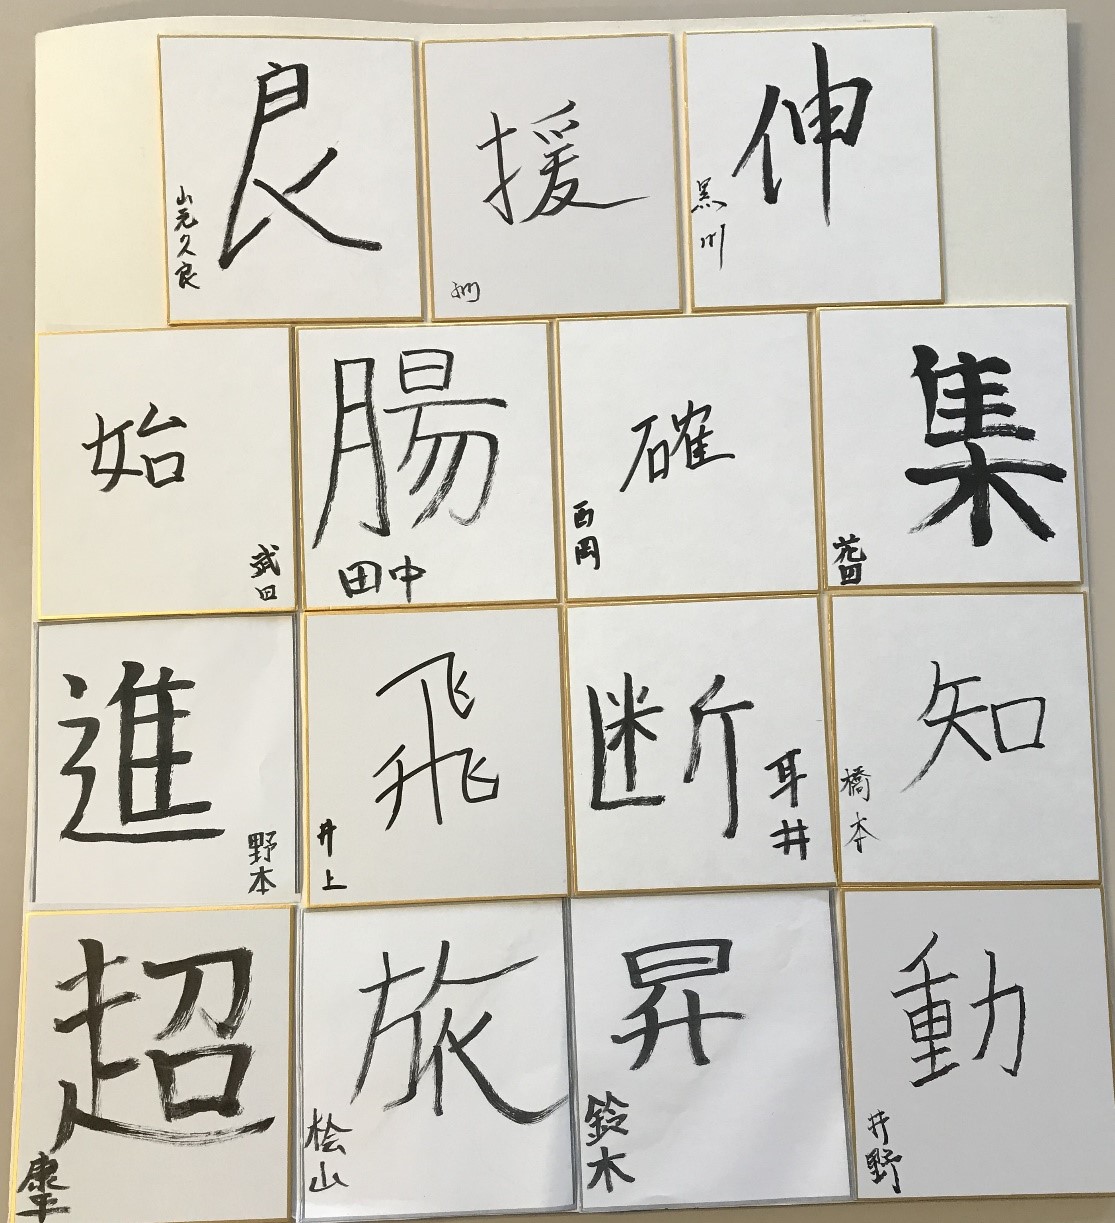 良
山元久良
援
伸
黒川
始
武田
腸
田中
確
西岡
集
花田
進
野本
飛
井上
断
耳井
知
橋本
超
康平
旅
桧山
昇
鈴木
動
井野